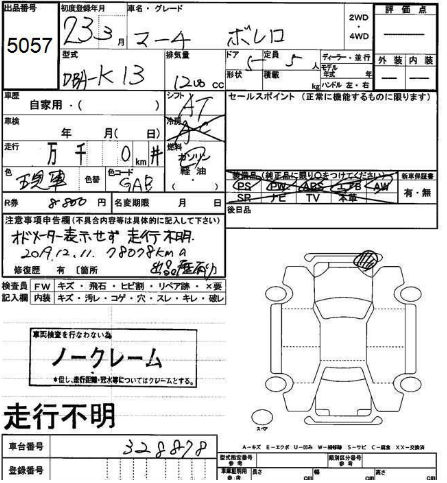 出品番号 初度登録年月 車名・グレード 2WD ・ 4WD 評価点
5057 23年3月 マーチ ボレロ
型式 排気量 ドア 定員 ディーラー・並行 外装 内装
DBA-K13 1200 cc 5 5人 モデル年式 年
形状 積載 kg ハンドル 左・右
車歴 シフト セールスポイント (正常に機能するものに限ります)
自家用・( ) AT
車検 冷房
年 月( 日) AC
走行 燃料
万 千 0 km ガソリン・軽油
装備品(純正品に限り○をつけてください) 新車保証書
色 色替 色コード PS PW ABS エアB AW 有・無
GAB SR ナビ TV 本革
R券 8800円 名変期限 月 日 後日品
注意事項申告欄(不具合内容等は具体的に記入して下さい)
オドメーター表示せず 走行不明
2019.12.11 78078km
修復歴 有 [箇所
検査員記入欄 FW キズ・飛石・ヒビ割・リペア跡・×要
内装 キズ・汚レ・コゲ・穴・スレ・キレ・破レ
車両検査を行なわない為
ノークレーム
*但し、走行距離・冠水等についてはクレームとする。
走行不明
スペア
A-キズ E-エクボ U-凹み W-補修跡 S-サビ C-腐食 XX-交換済
車台番号 328878
登録番号
型式指定番号 参考 類別区分番号 参考
車庫証明用 参考 長さ cm 幅 cm 高さ cm